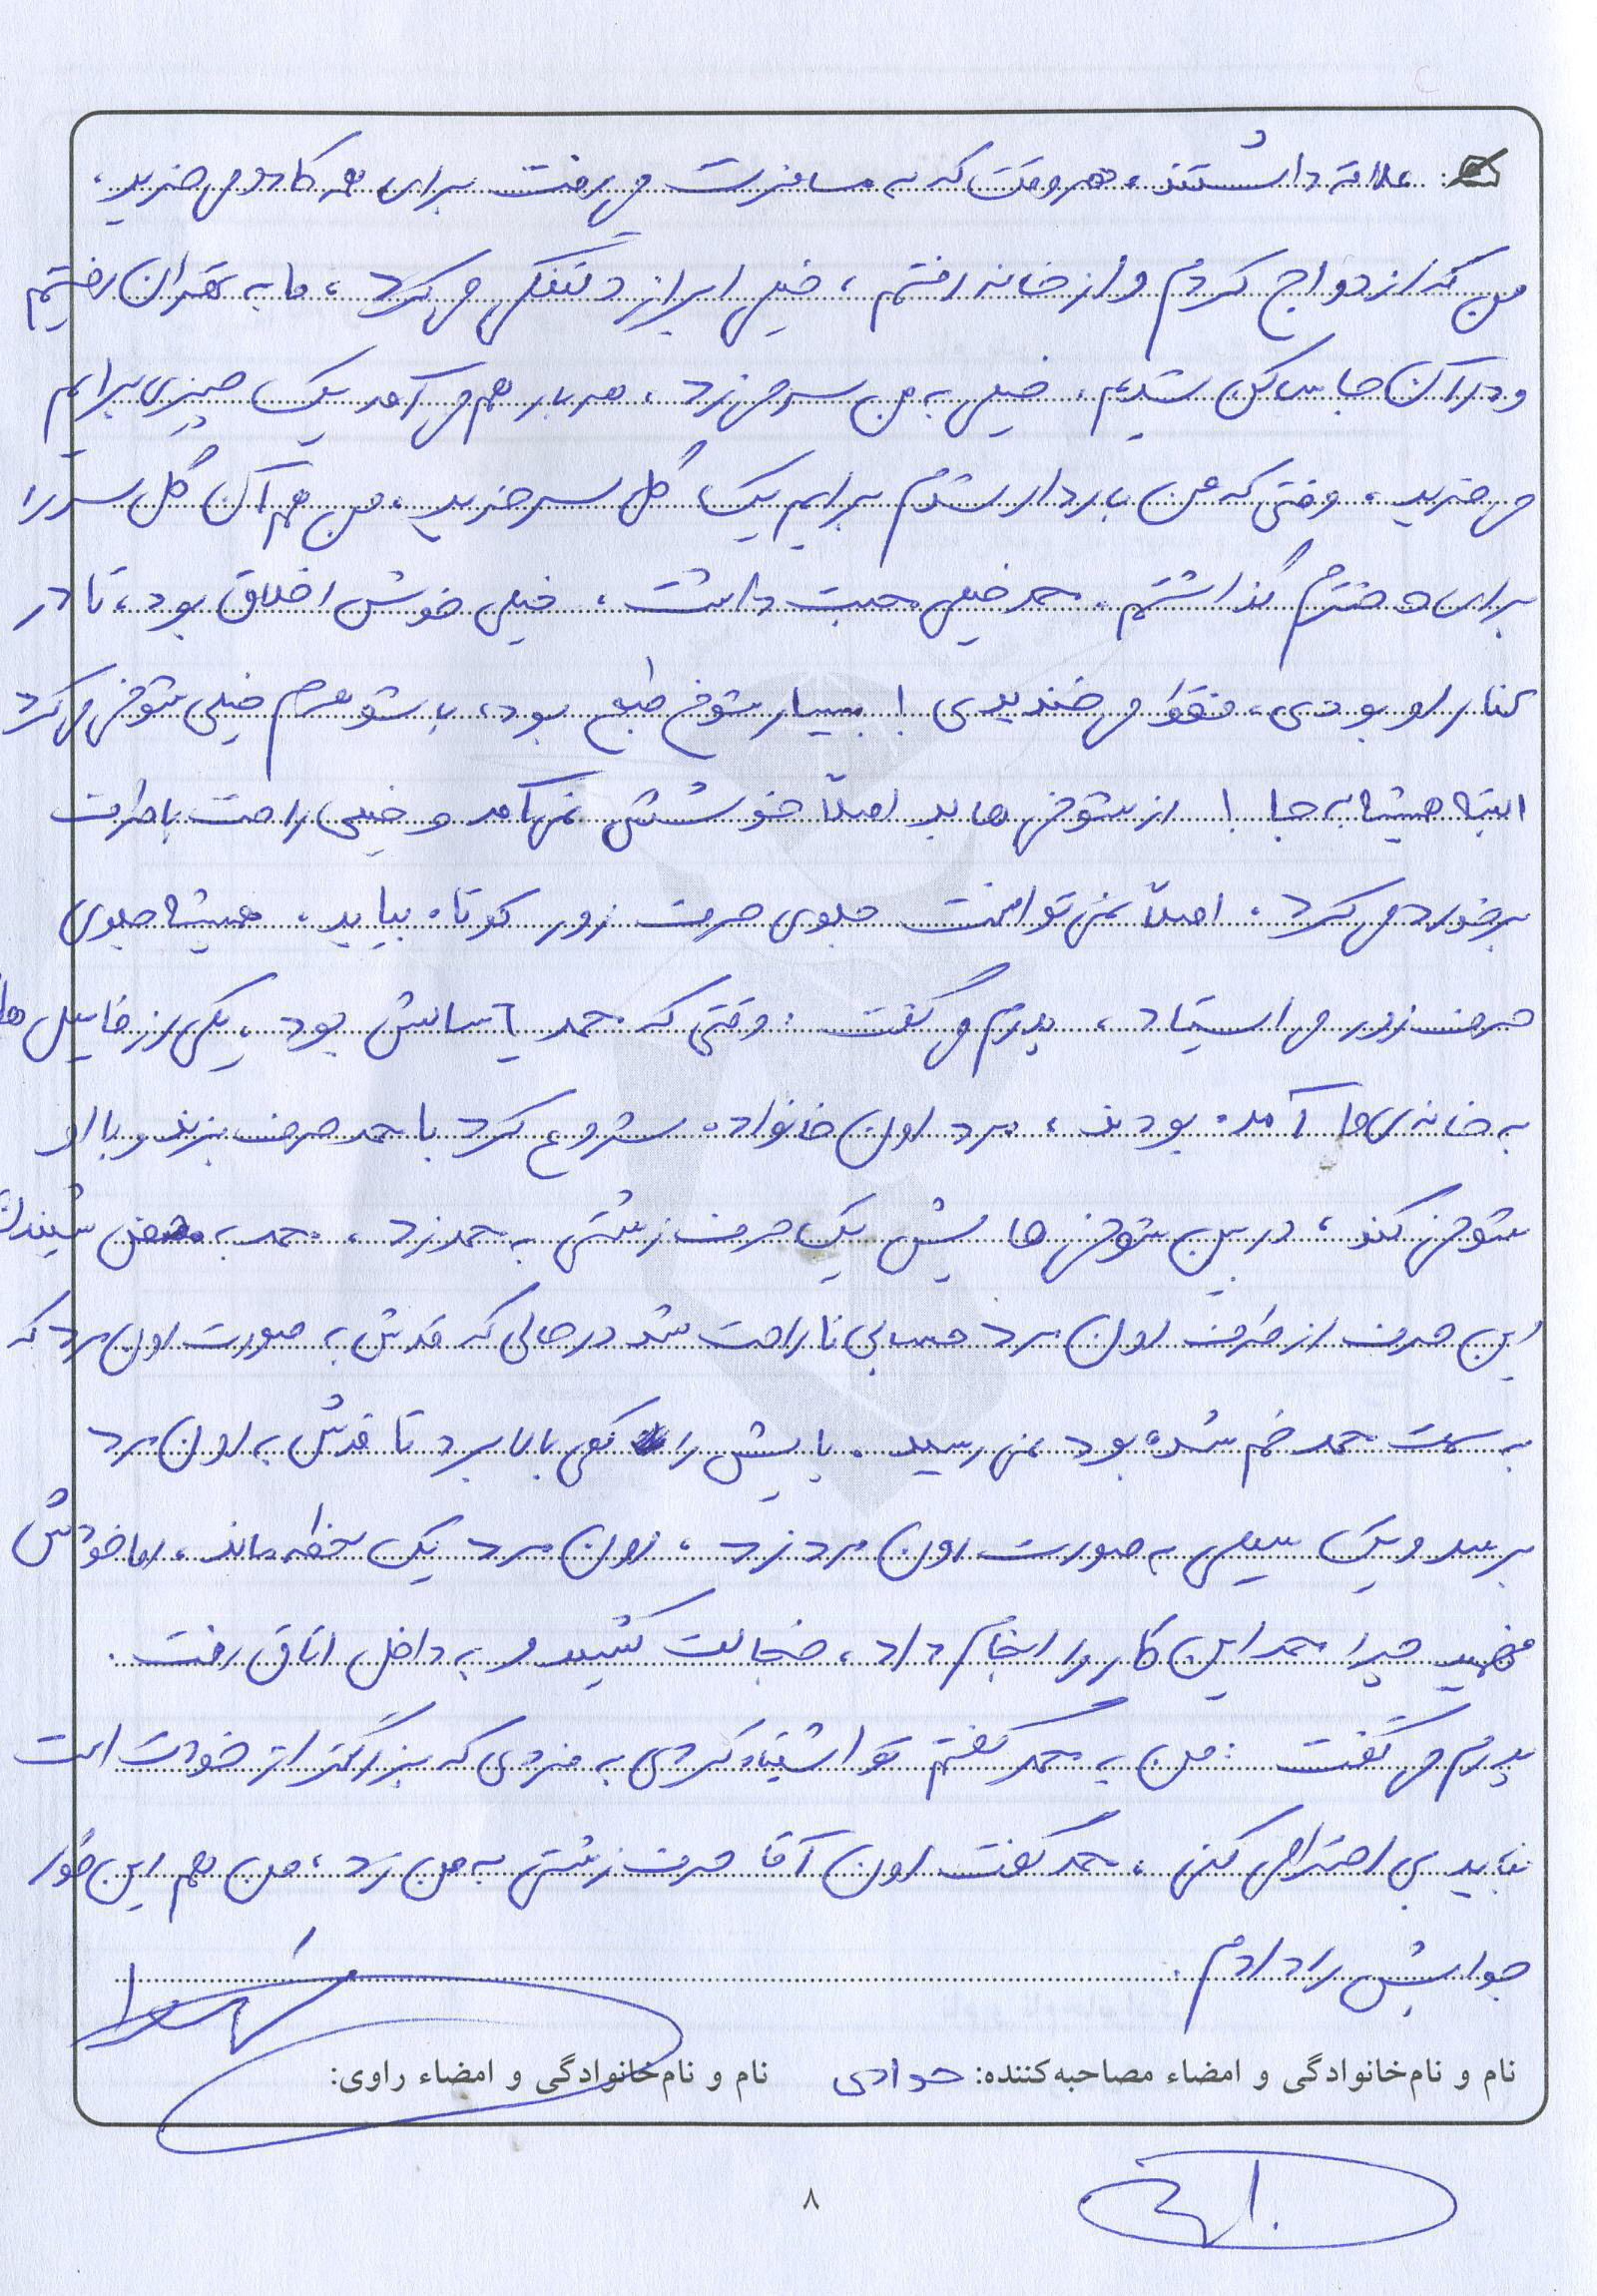 علاقه داشتند، هر وقت که به مسافرت می رفت برای همه کادو می خرید.
من که ازدواج کردم و از خانه رفتم، خیلی ابراز دلتنگی می کرد، ما به تهران رفتیم
و در آن جا ساکن شدیم، خیلی به من سر می زد، هر بار هم می آمد یک چیزی برایم
می خرید، وقتی که من باردار شدم برایم یک گل سر خرید، من هم آن گل سر را
برای دخترم گذاشتم. محمد خیلی محبت داشت، خیلی خوش اخلاق بود، تا در
کنار او بودی، فقط می خندیدی! بسیار شوخ طبع بود، با شوهرم خیلی شوخی می کرد
البته همیشه به جا! از شوخی های بد اصلاً خوشش نمی آمد و خیلی راحت با طرف
برخورد می کرد. اصلاً نمی توانست جلوی حرف زور کوتاه بیاید، همیشه جلوی
حرف زور می ایستاد، پدرم می گفت: وقتی که محمد ٦ سالش بود، یکی از فامیل ها
به خانه ی ما آمده بودند، مرد اون خانواده شروع کرد با محمد حرف بزند و با او
شوخی کند، در بین شوخی هایش یک حرف زشتی به محمد زد، محمد به محض شنیدن
این حرف از طرف اون مرد حسابی ناراحت شد در حالی که قدش به صورت اون مرد که
به سمت محمد خم شده بود نمی رسید. پایش را کمی بالا برد تا قدش به اون مرد
برسد و یک سیلی به صورت اون مرد زد، اون مرد یک لحظه ماند، اما خودش
فهمید چرا محمد این کار را انجام داد، خجالت کشید و به داخل اتاق رفت.
پدرم می گفت: من به محمد گفتم تو اشتباه کردی به فردی که بزرگتر از خودت است
نباید بی احترامی کنی، محمد گفت اون آقا حرف زشتی به من زد، من هم این طور
جوابش را دادم.
نام و نام‌خانوادگی و امضاء مصاحبه‌کننده: جوادی نام و نام‌خانوادگی و امضاء راوی:
۸